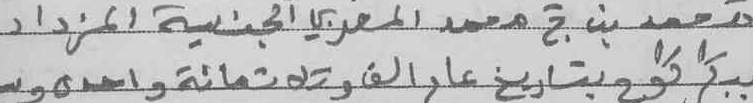 محمد بن ج محمد المغربي الجنسية المزداد
ببركراكوح بتاريخ عام الف وتلاتمائة واحد وس